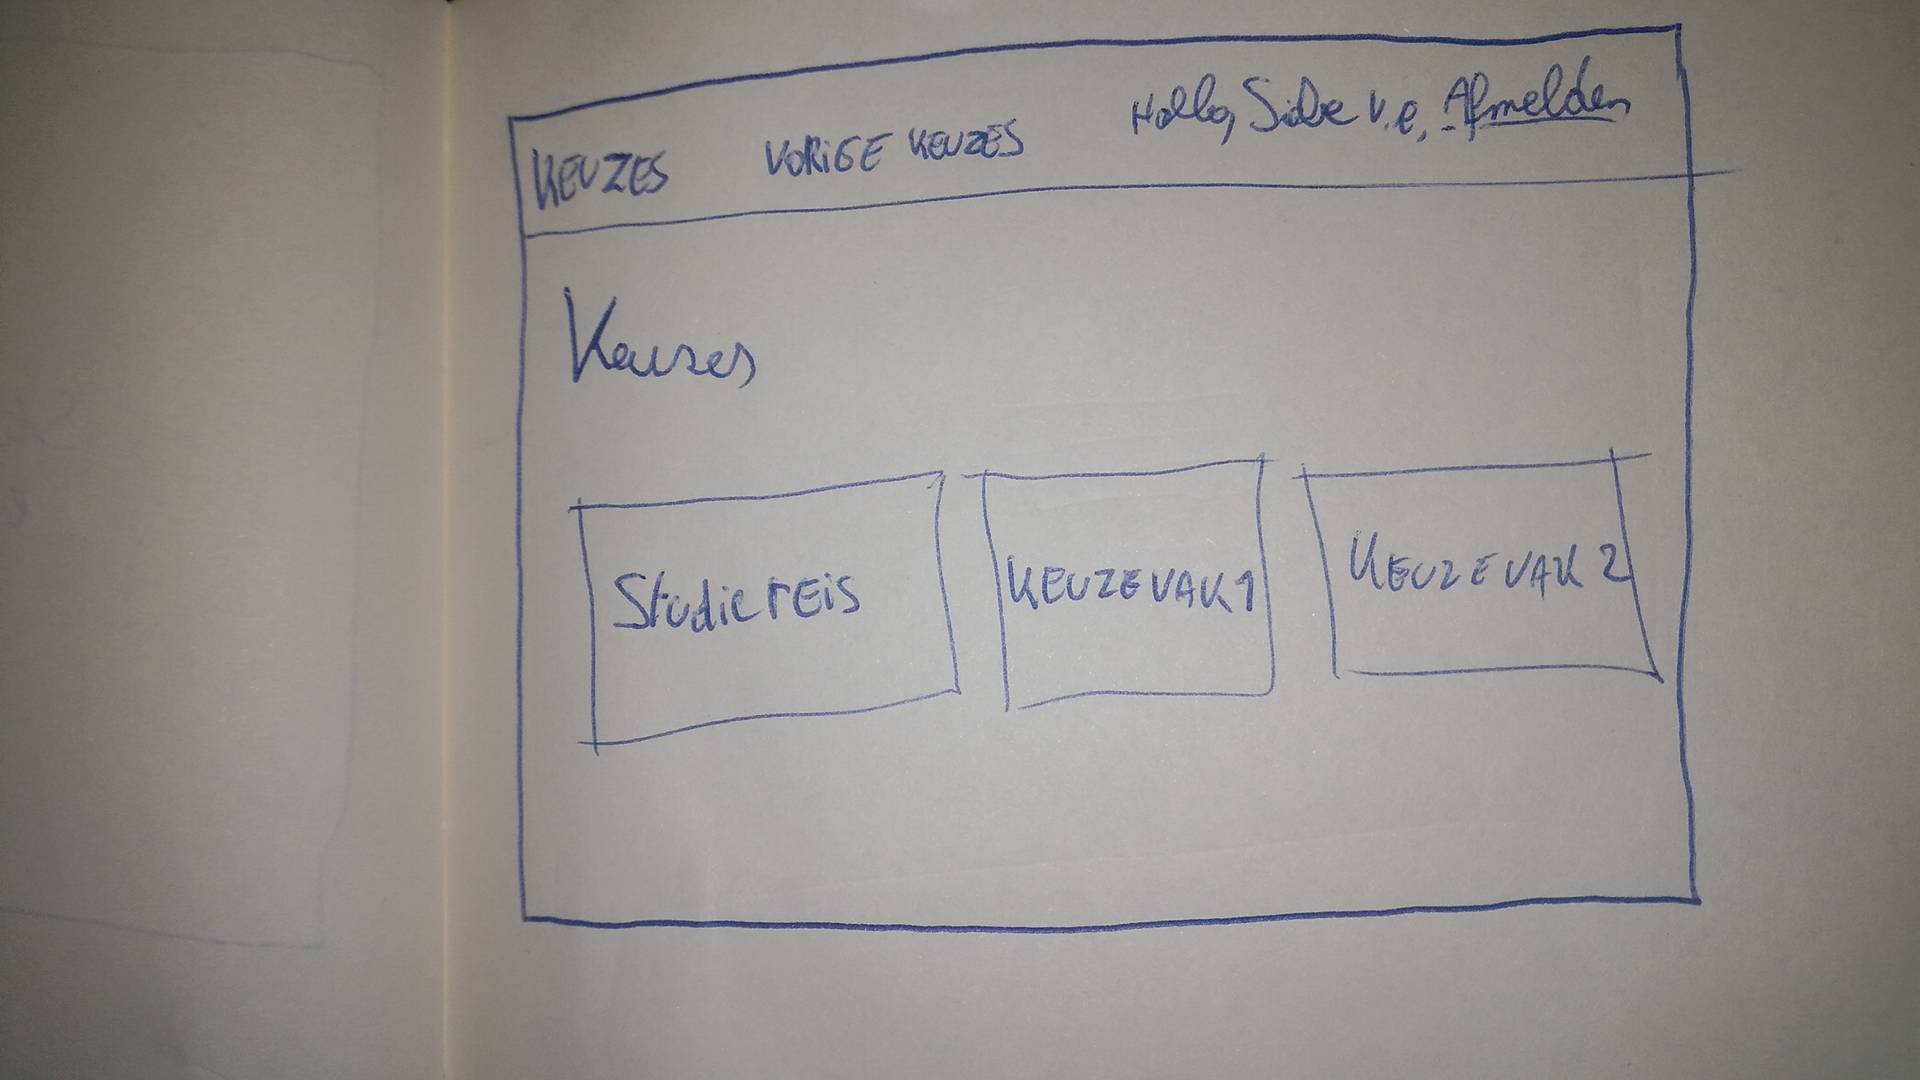 KEUZES VORIGE KEUZES Hallo, Sibe v.e, Afmelden
Keuzes
Studiereis KEUZEVAK 1 KEUZEVAK 2